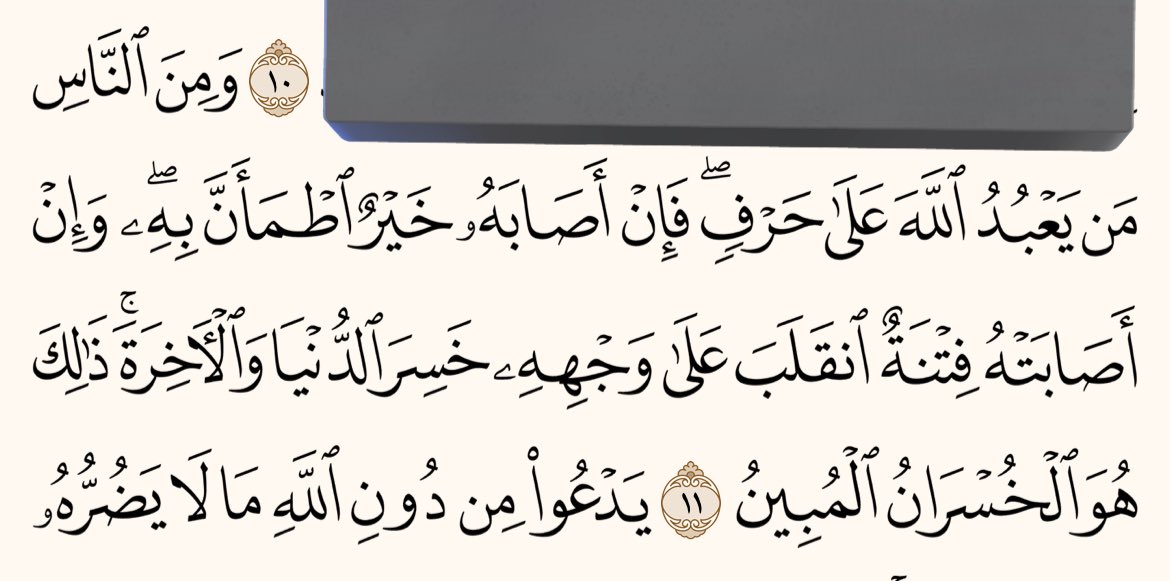 ١٠ وَمِنَ ٱلنَّاسِ
مَن يَعۡبُدُ ٱللَّهَ عَلَىٰ حَرۡفٖۖ فَإِنۡ أَصَابَهُۥ خَيۡرٌ ٱطۡمَأَنَّ بِهِۦۖ وَإِنۡ
أَصَابَتۡهُ فِتۡنَةٌ ٱنقَلَبَ عَلَىٰ وَجۡهِهِۦ خَسِرَ ٱلدُّنۡيَا وَٱلۡأٓخِرَةَۚ ذَٰلِكَ
هُوَ ٱلۡخُسۡرَانُ ٱلۡمُبِينُ ١١ يَدۡعُواْ مِن دُونِ ٱللَّهِ مَا لَا يَضُرُّهُۥ